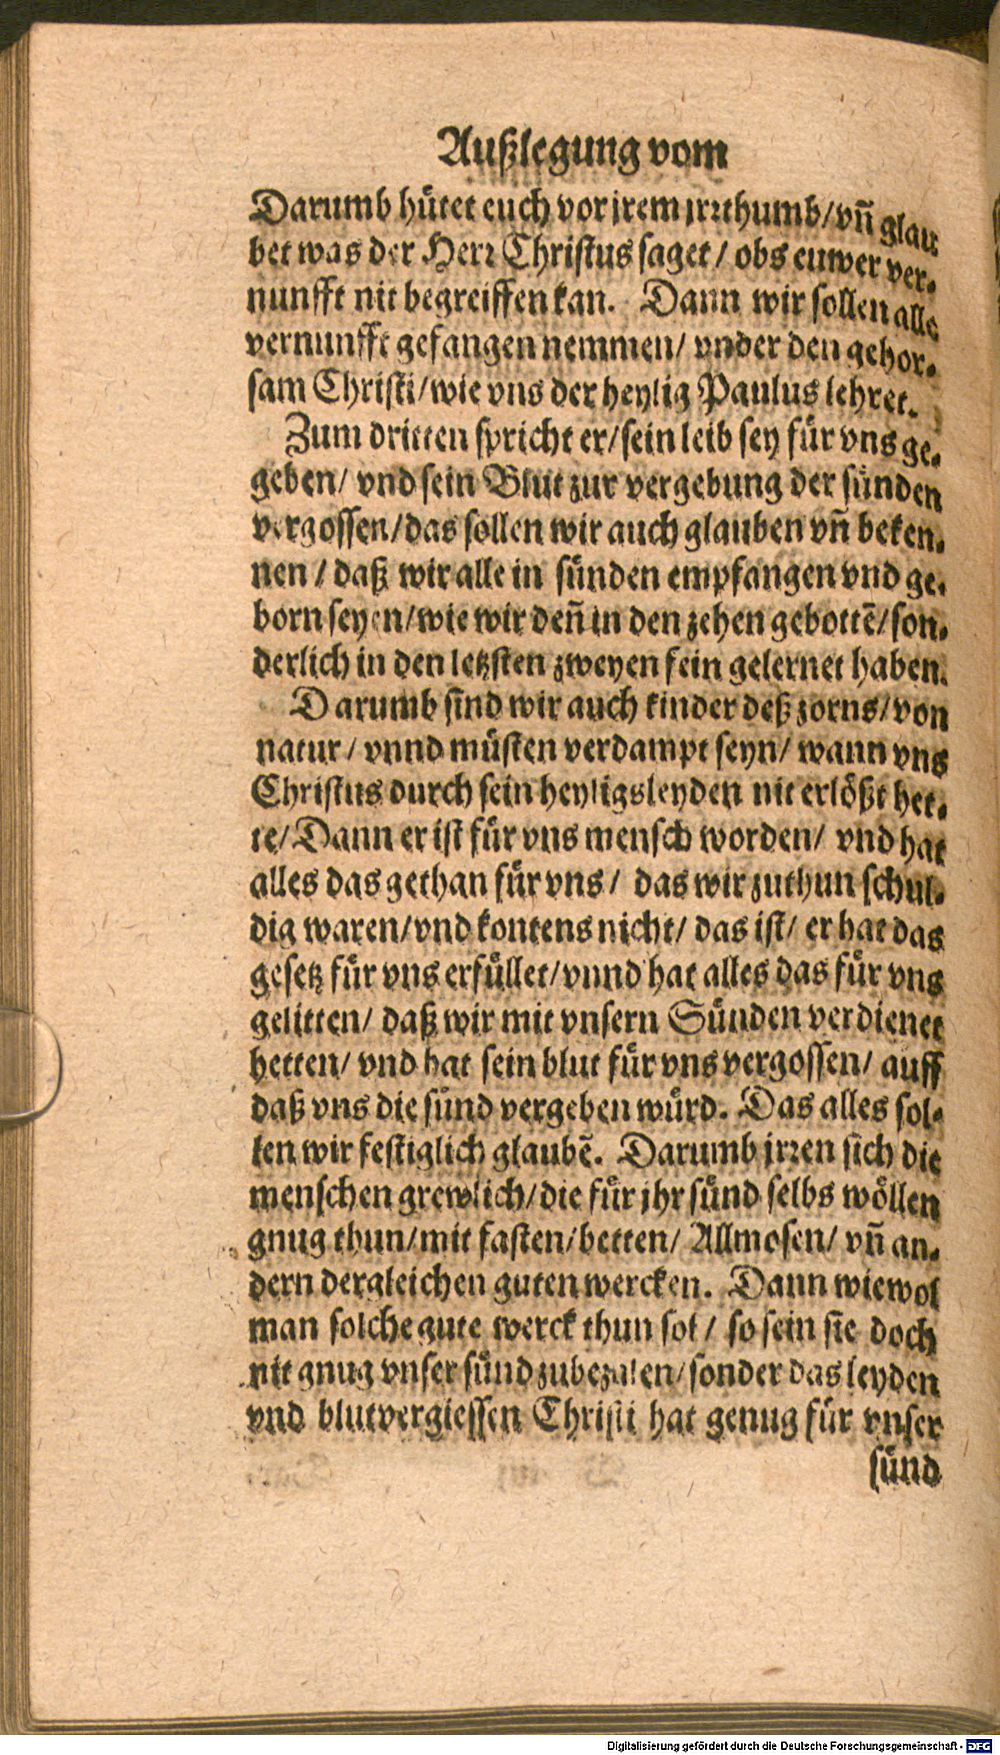 Außlegung vom
Darumb hütet euch vor jrem jrrthumb/ vñ glau-
bet was der Herr Christus saget/ obs euwer ver-
nunfft nit begreiffen kan. Dann wir sollen alle
vernunfft gefangen nemmen/ vnder den gehor-
sam Christi/ wie vns der heylig Paulus lehret.
Zum dritten spricht er/ sein leib sey für vns ge-
geben/ vnd sein Blut zur vergebung der sünden
vergossen/ das sollen wir auch glauben vñ beken-
nen/ daß wir alle in sünden empfangen vnd ge-
born seyen/ wie wir deñ in den zehen gebottē/ son-
derlich in den letzsten zweyen fein gelernet haben.
Darumb sind wir auch kinder deß zorns/ von
natur/ vnnd müsten verdampt seyn/ wann vns
Christus durch sein heyligs leyden nit erlößt het-
te/ Dann er ist für vns mensch worden/ vnd hat
alles das gethan für vns/ das wir zuthun schul-
dig waren/ vnd kontens nicht/ das ist/ er hat das
gesetz für vns erfüllet/ vnnd hat alles das für vns
gelitten/ daß wir mit vnsern Sünden verdienet
hetten/ vnd hat sein blut für vns vergossen/ auff
daß vns die sünd vergeben würd. Das alles sol-
len wir festiglich glaubē. Darumb jrren sich die
menschen grewlich/ die für jhr sünd selbs wöllen
gnug thun/ mit fasten/ betten/ Allmosen/ vñ an-
dern dergleichen guten wercken. Dann wiewol
man solche gute werck thun sol/ so sein sie doch
nit gnug vnser sünd zubezalen/ sonder das leyden
vnd blutvergiessen Christi hat genug für vnser
sünd
Digitalisierung gefördert durch die Deutsche Forschungsgemeinschaft - DFG